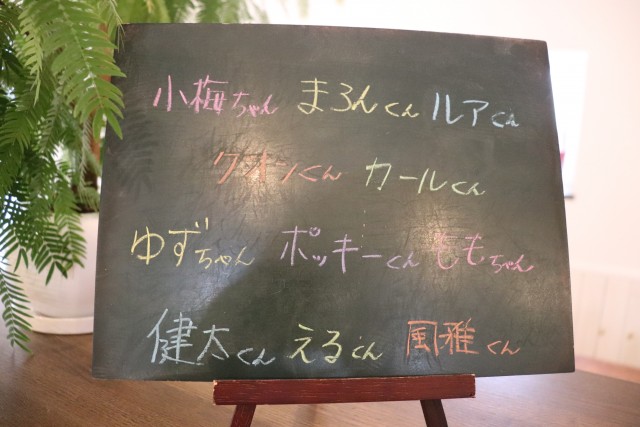 小梅ちゃん まろんくん ルアくん
クオンくん カールくん
ゆずちゃん ポッキーくん ももちゃん
健太くん えるくん 風雅くん